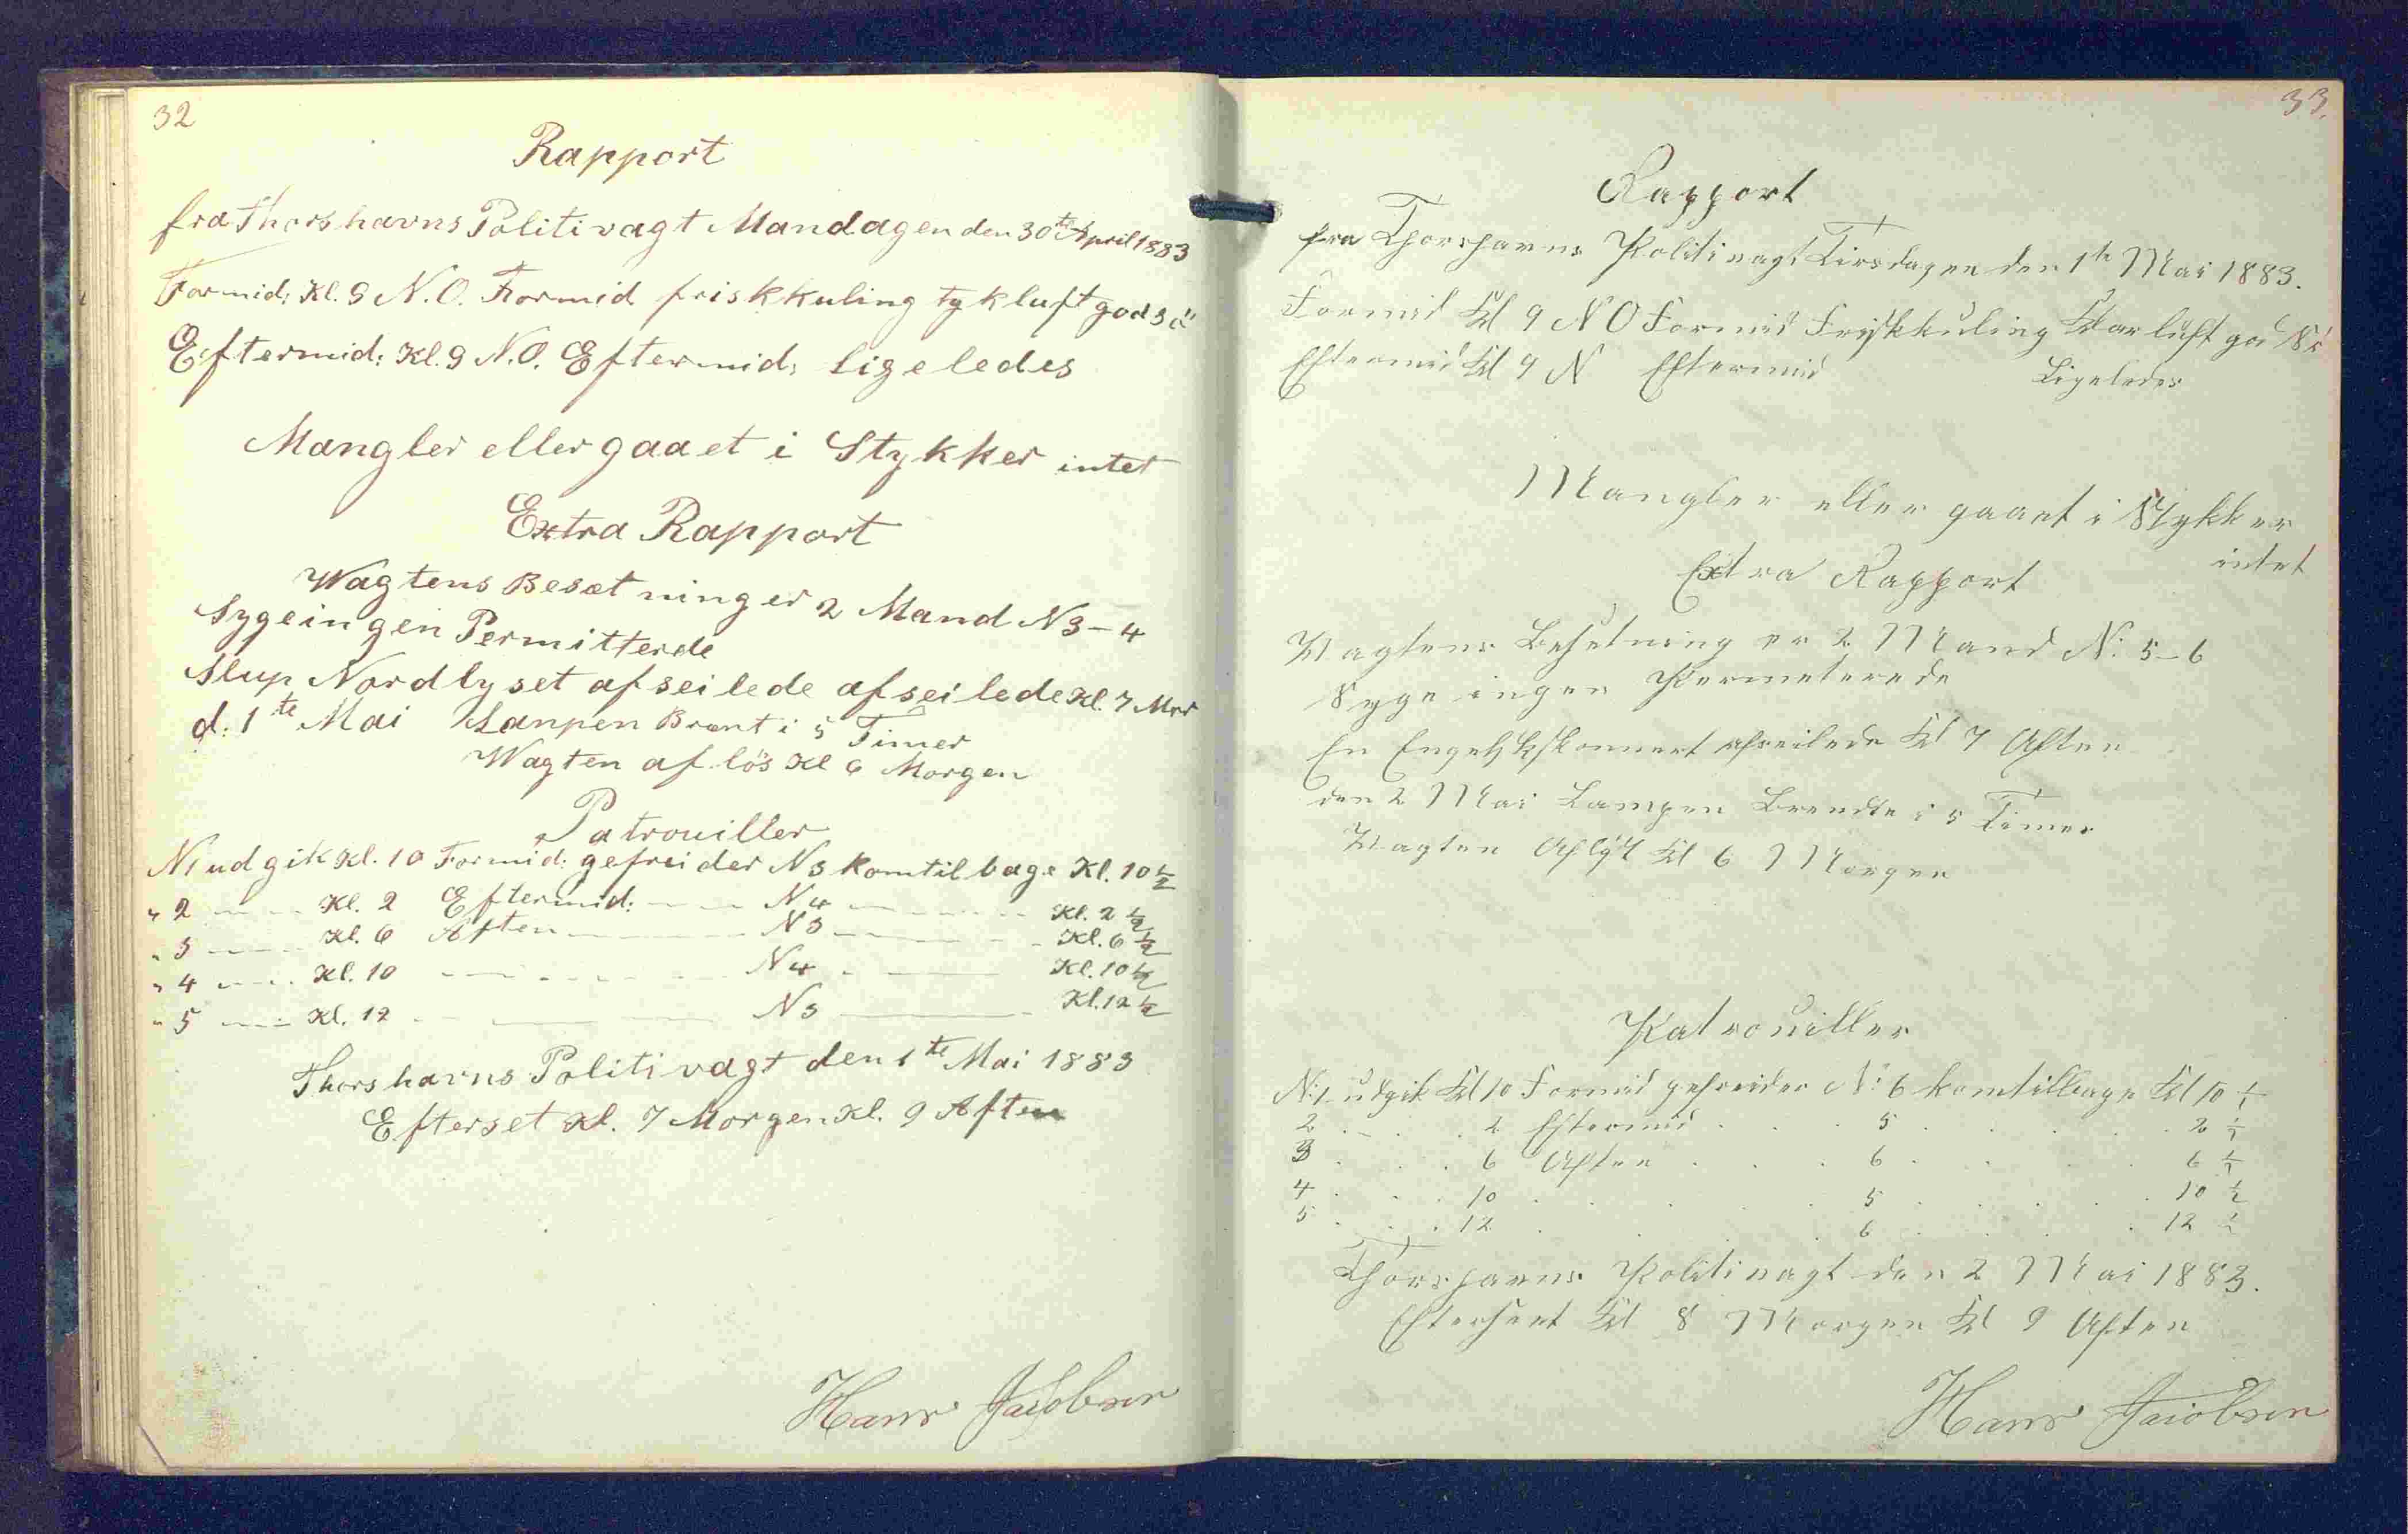 32
Rapport
fra Thorshavns Politivagt Mandagen den 30te April 1883
Formid: Kl. 9 N.O. Formid friskkuling tykluft god Sö
Eftermid: Kl. 9 N.O. Eftermid: ligeledes
Mangler eller gaaet i Stykker intet
Extra Rapport
Wagtens Besætning er 2 Mand N 3-4
Syge ingen Permitterde
Slup Nordlyset afseilede afseilede Kl. 7 Mor
d: 1te Mai Lanpen Brænt i 5 Timer
Wagten aflös Kl 6 Morgen
Patrouiller
N1 udgik Kl. 10 Formid: gefreider N3 kom tilbage Kl. 10 1/2
" 2 Kl. 2 Eftermid: N4 Kl. 2 1/2
" 3 Kl. 6 Aften N3 Kl. 6 1/2
" 4 Kl. 10 N4 Kl. 10 1/2
" 5 Kl. 12 N3 Kl. 12 1/2
Thorshavns Politivagt den 1te Mai 1883
Efterset Kl. 7 Morgen Kl. 9 Aften
Hans Jacobsen
33.
Rapport
fra Thorshavns Politivagt Tirsdagen den 1te Mai 1883.
Formid Kl 9 NO Formid Friskkuling Klar luft god Sö
Eftermid Kl 9 N Eftermid Ligeledes
Mangler eller gaaet i Stykker
intet
Extra Rapport
Wagtens Besetning er 2 Mand N: 5-6
Syge ingen Permeterede
En Engelsk skonnert afseilede Kl 7 Aften
den 2 Mai Lampen Brendte i 5 Timer
Wagten Afløst Kl 6 Morgen
Patrouiller
N:1 udgik Kl 10 Formid gefreider N: 6 kom tilbage Kl 10 1/2
2 2 Eftermid 5 2 1/2
3 6 Aften 6 6 1/2
4 10 5 10 1/2
5 12 6 12 1/2
Thorshavns Politivagt den 2 Mai 1883.
Efterseet Kl 8 Morgen Kl 9 Aften
Hans Jacobsen